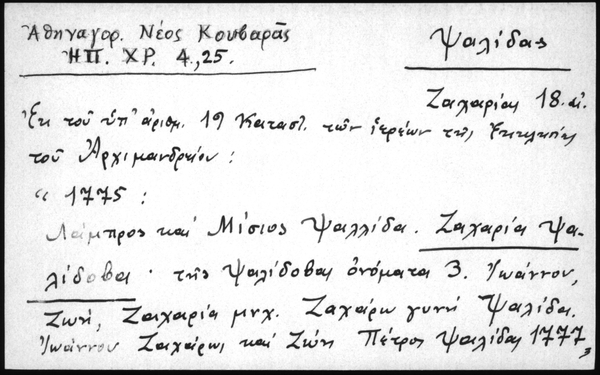 Ἀθηναγορ. Νέος Κουβαρᾶς
ΗΠ. ΧΡ. 4, 25.
Ψαλίδας
Ζαχαρίας 18. αἰ.
Ἐκ τοῦ ὑπ' ἀριθμ. 19 Καταστ. τῶν ἱερέων τῆς Ἐκκλησίας
τοῦ Ἀρχιμανδρείου :
" 1775 :
Λάμπρος καὶ Μίσιος Ψαλλίδα. Ζαχαρία Ψα-
λίδοβας · τῆς Ψαλίδοβας ὀνόματα 3. Ἰωάννου,
Ζωή, Ζαχαρία μνχ. Ζαχάρω γυνή Ψαλίδα.
Ἰωάννου Ζαχάρως καὶ Ζωή Πέτρος Ψαλίδας 1777